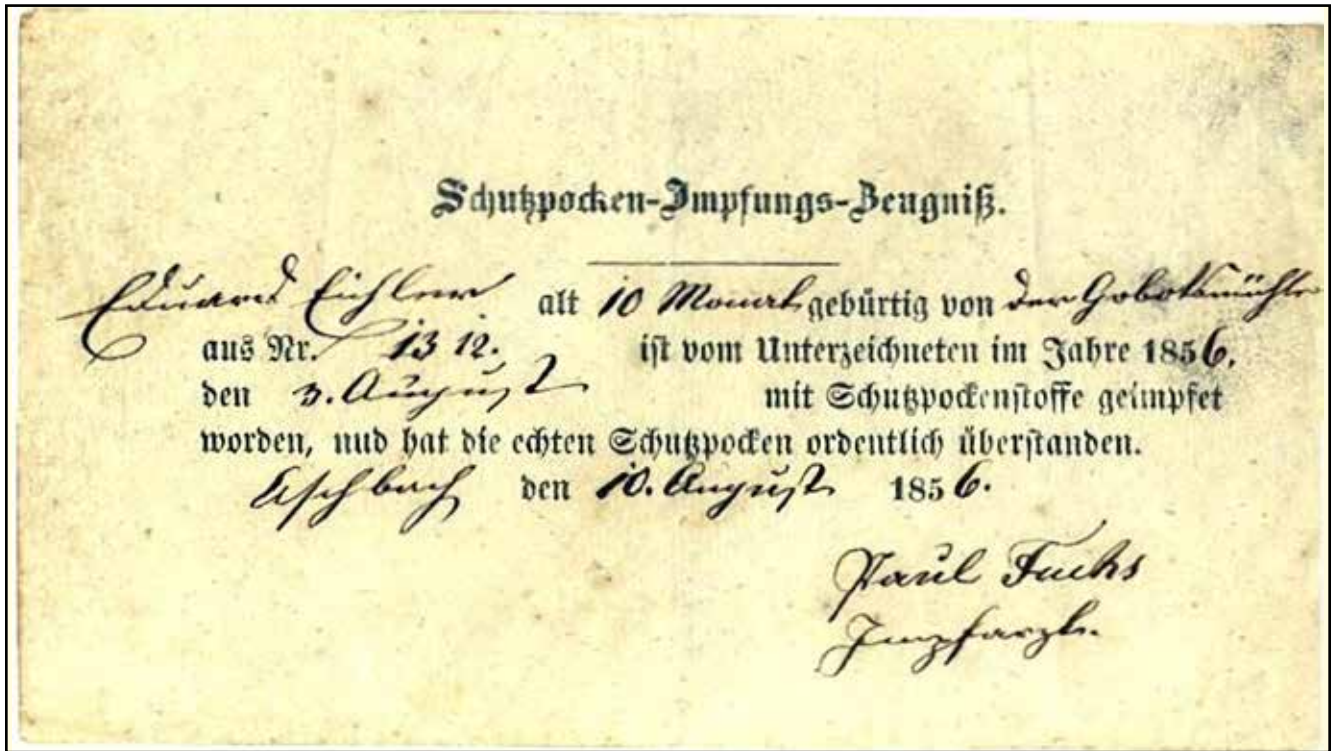 Schutzpocken-Impfungs-Zeugniß.
Eduard Eichler alt 10 Monat gebürtig von der
aus Nr. 13 12. ist vom Unterzeichneten im Jahre 1856.
den 3. August mit Schutzpockenstoffe geimpfet
worden, nud hat die echten Schutzpocken ordentlich überstanden.
Aschbach den 10. August 1856.
Paul Fuchs
Impfarzt.